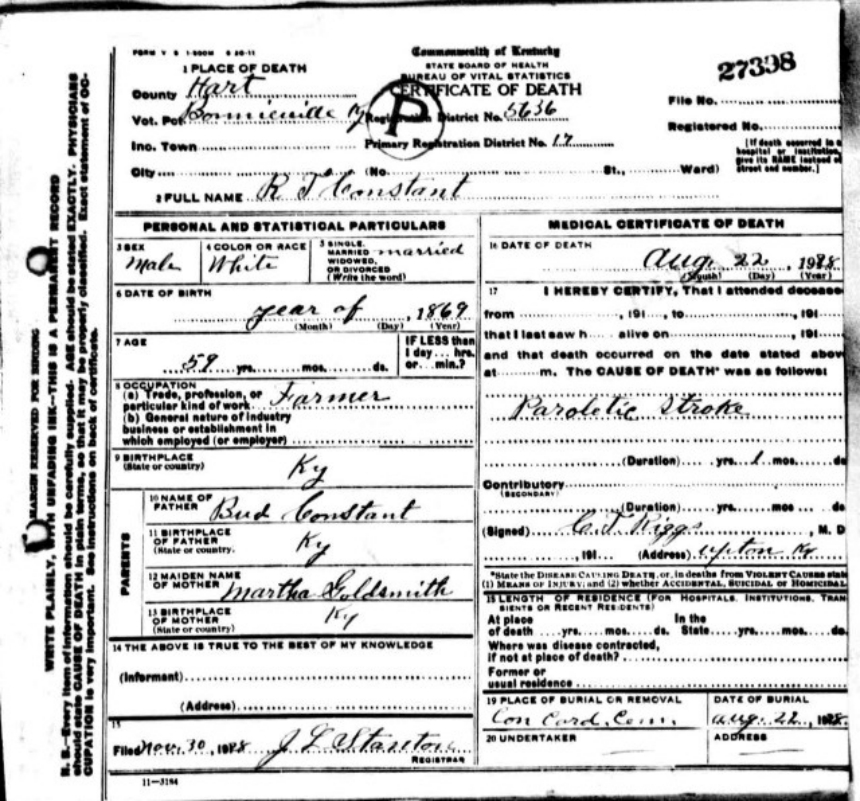 FORM V S 1-500M 6 20-11
Commonwealth of Kentucky
STATE BOARD OF HEALTH
BUREAU OF VITAL STATISTICS
CERTIFICATE OF DEATH
27398
1 PLACE OF DEATH
County Hart
Vot. Pct Bonnieville Ky Registration District No. 5636
File No.
Inc. Town Primary Registration District No. 17
Registered No.
City (No. St., Ward)
[If death occurred in a hospital or institution, give its NAME instead of street and number.]
2 FULL NAME R T Constant
PERSONAL AND STATISTICAL PARTICULARS
3 SEX Male
4 COLOR OR RACE White
5 SINGLE, MARRIED, WIDOWED, OR DIVORCED (Write the word) married
6 DATE OF BIRTH
year of , 1869
(Month) (Day) (Year)
7 AGE
59 yrs. mos. ds.
IF LESS than 1 day... hrs. or... min.?
8 OCCUPATION
(a) Trade, profession, or particular kind of work Farmer
(b) General nature of industry
business or establishment in
which employed (or employer)
9 BIRTHPLACE
(State or country) Ky
PARENTS
10 NAME OF FATHER Bud Constant
11 BIRTHPLACE OF FATHER (State or country. Ky
12 MAIDEN NAME OF MOTHER Martha Goldsmith
13 BIRTHPLACE OF MOTHER (State or country) Ky
14 THE ABOVE IS TRUE TO THE BEST OF MY KNOWLEDGE
(Informant)
(Address)
15
Filed Nov. 30, 1928 J L Stanton
REGISTRAR
11-3184
MEDICAL CERTIFICATE OF DEATH
16 DATE OF DEATH
Aug 22 , 1928
(Month) (Day) (Year)
17 I HEREBY CERTIFY, That I attended deceased
from , 191 , to , 191
that I last saw h alive on , 191
and that death occurred on the date stated above
at m. The CAUSE OF DEATH* was as follows:
Paroletic Stroke
(Duration) yrs. 1 mos. ds
Contributory
(SECONDARY)
(Duration) yrs. mos ds
(Signed) C. T Riggs , M. D
, 191 (Address) Upton Ky
*State the DISEASE CAUSING DEATH, or, in deaths from VIOLENT CAUSES state
(1) MEANS OF INJURY; and (2) whether ACCIDENTAL, SUICIDAL or HOMICIDAL
18 LENGTH OF RESIDENCE (FOR HOSPITALS, INSTITUTIONS, TRAN
SIENTS OR RECENT RESIDENTS)
At place In the
of death yrs. mos. ds. State yrs. mos. ds.
Where was disease contracted,
if not at place of death?
Former or
usual residence
19 PLACE OF BURIAL OR REMOVAL Con Cord. Cem.
DATE OF BURIAL Aug. 22, 1928
20 UNDERTAKER
ADDRESS
MARGIN RESERVED FOR BINDING
WRITE PLAINLY, WITH UNFADING INK—THIS IS A PERMANENT RECORD
N. B.—Every item of information should be carefully supplied. AGE should be stated EXACTLY. PHYSICIANS
should state CAUSE OF DEATH in plain terms, so that it may be properly classified. Exact statement of OC-
CUPATION is very important. See instructions on back of certificate.
P